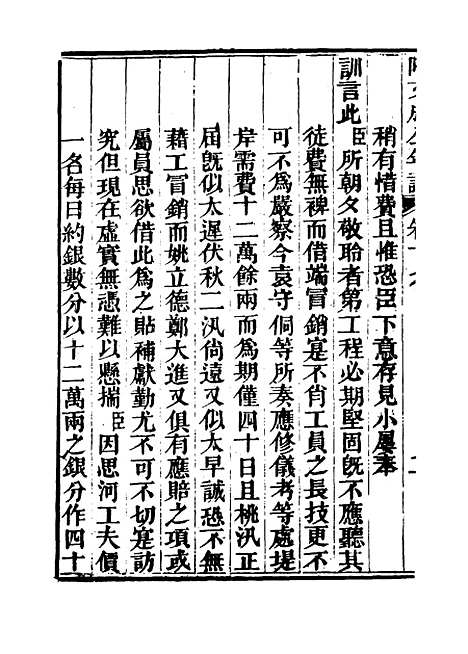 稍有惜費且惟恐臣下意存見小屢奉
訓言此臣所朝夕敬聆者第工程必期堅固旣不應聽其
徒費無裨而借端冒銷寔不肖工員之長技更不
可不爲嚴察今袁守侗等所奏應修儀考等處堤
岸需費十二萬餘兩而爲期僅四十日且桃汛正
屆旣似太遲伏秋二汛尚遠又似太早誠恐不無
藉工冒銷而姚立德鄭大進又俱有應賠之項或
屬員思欲借此爲之貼補獻勤尤不可不切寔訪
究但現在虛實無憑難以懸揣臣因思河工夫價
一名每日約銀數分以十二萬兩之銀分作四十